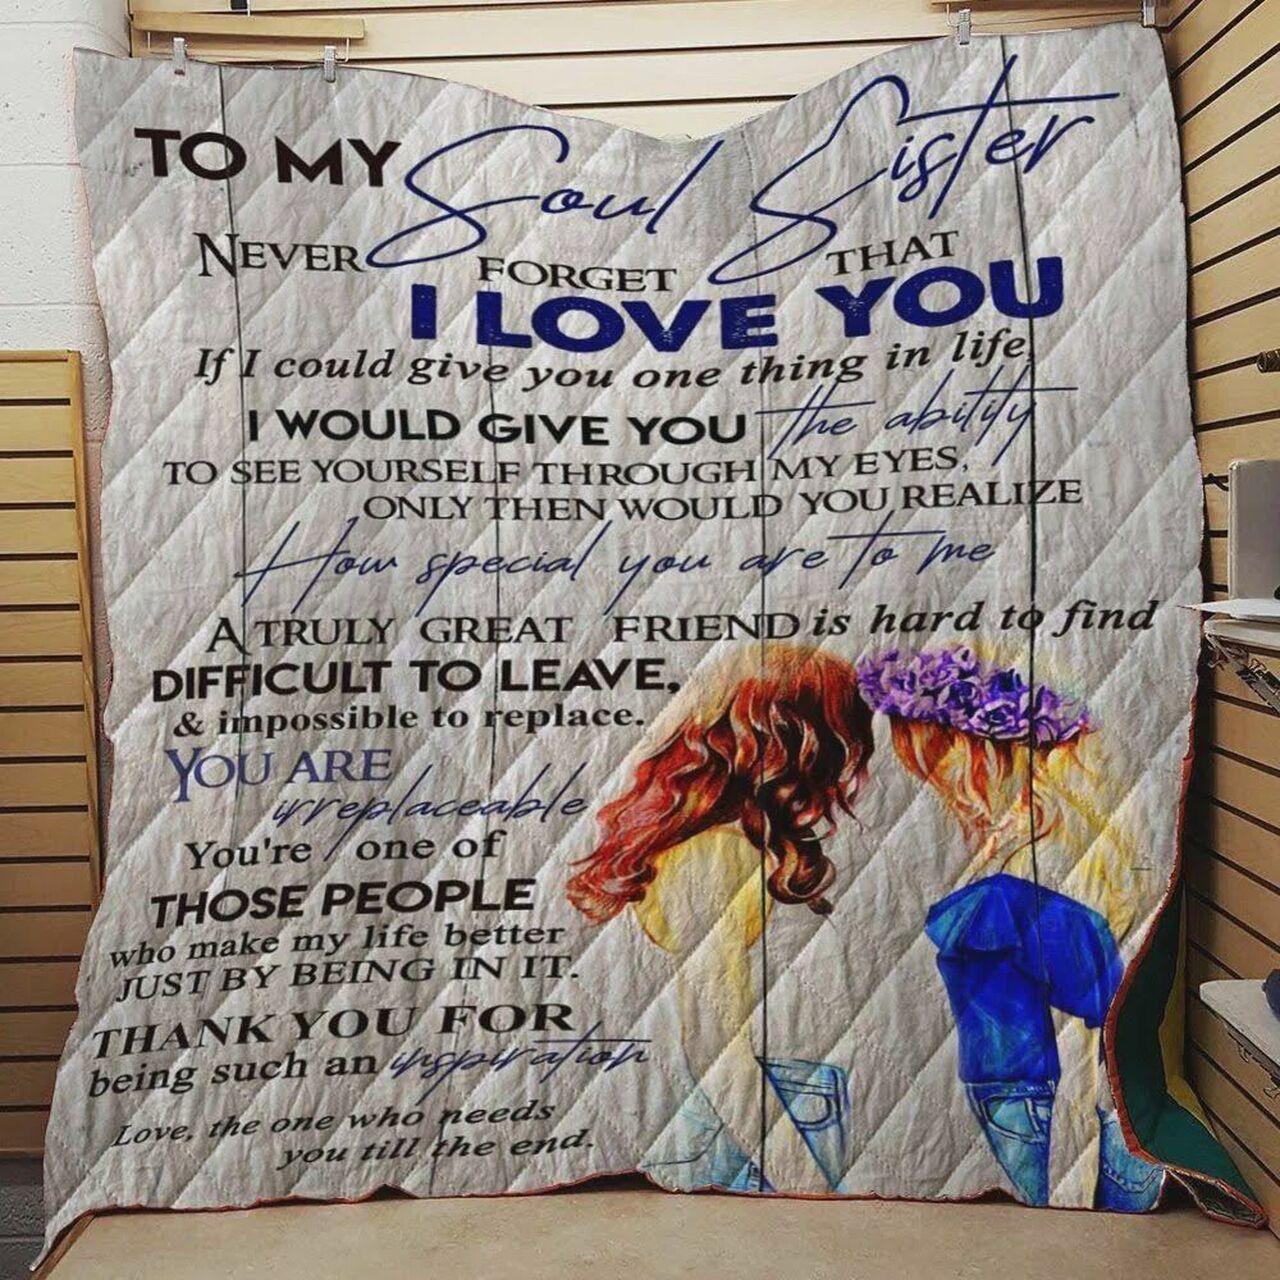 TO MY Soul Sister
NEVER FORGET THAT
I LOVE YOU
If I could give you one thing in life,
I WOULD GIVE YOU the ability
TO SEE YOURSELF THROUGH MY EYES,
ONLY THEN WOULD YOU REALIZE
How special you are to me
A TRULY GREAT FRIEND is hard to find
DIFFICULT TO LEAVE,
& impossible to replace.
YOU ARE
irreplaceable
You're one of
THOSE PEOPLE
who make my life better
JUST BY BEING IN IT.
THANK YOU FOR
being such an inspiration
Love, the one who needs
you till the end.